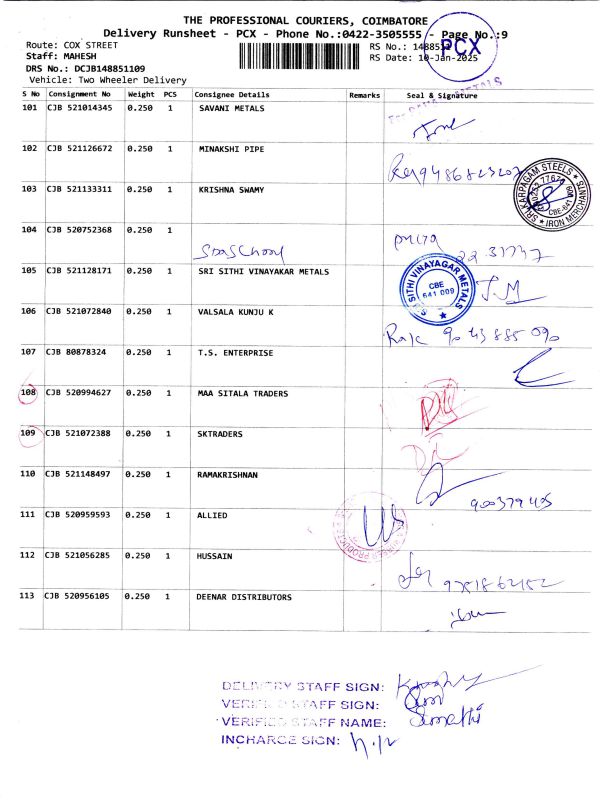 THE PROFESSIONAL COURIERS, COIMBATORE
Delivery Runsheet - PCX - Phone No.:0422-3505555 - Page No.:9
Route: COX STREET
RS No.: 148851
Staff: MAHESH
RS Date: 10-Jan-2025
PCX
DRS No.: DCJB148851109
Vehicle: Two Wheeler Delivery
S No Consignment No Weight PCS Consignee Details Remarks Seal & Signature
101 CJB 521014345 0.250 1 SAVANI METALS
102 CJB 521126672 0.250 1 MINAKSHI PIPE
9486823207
103 CJB 521133311 0.250 1 KRISHNA SWAMY
SRI KARPAGAM STEELS
CBE-641 009
IRON MERCHANTS
104 CJB 520752368 0.250 1
priya
105 CJB 521128171 0.250 1 SRI SITHI VINAYAKAR METALS
SITHI VINAYAGAR METALS
CBE
641 009
J.M
106 CJB 521072840 0.250 1 VALSALA KUNJU K
90 43 885 090
107 CJB 80878324 0.250 1 T.S. ENTERPRISE
108 CJB 520994627 0.250 1 MAA SITALA TRADERS
109 CJB 521072388 0.250 1 SKTRADERS
110 CJB 521148497 0.250 1 RAMAKRISHNAN
111 CJB 520959593 0.250 1 ALLIED
112 CJB 521056285 0.250 1 HUSSAIN
113 CJB 520956105 0.250 1 DEENAR DISTRIBUTORS
DELIVERY STAFF SIGN:
VERIFIED STAFF SIGN:
VERIFIED STAFF NAME: Sumathi
INCHARGE SIGN: